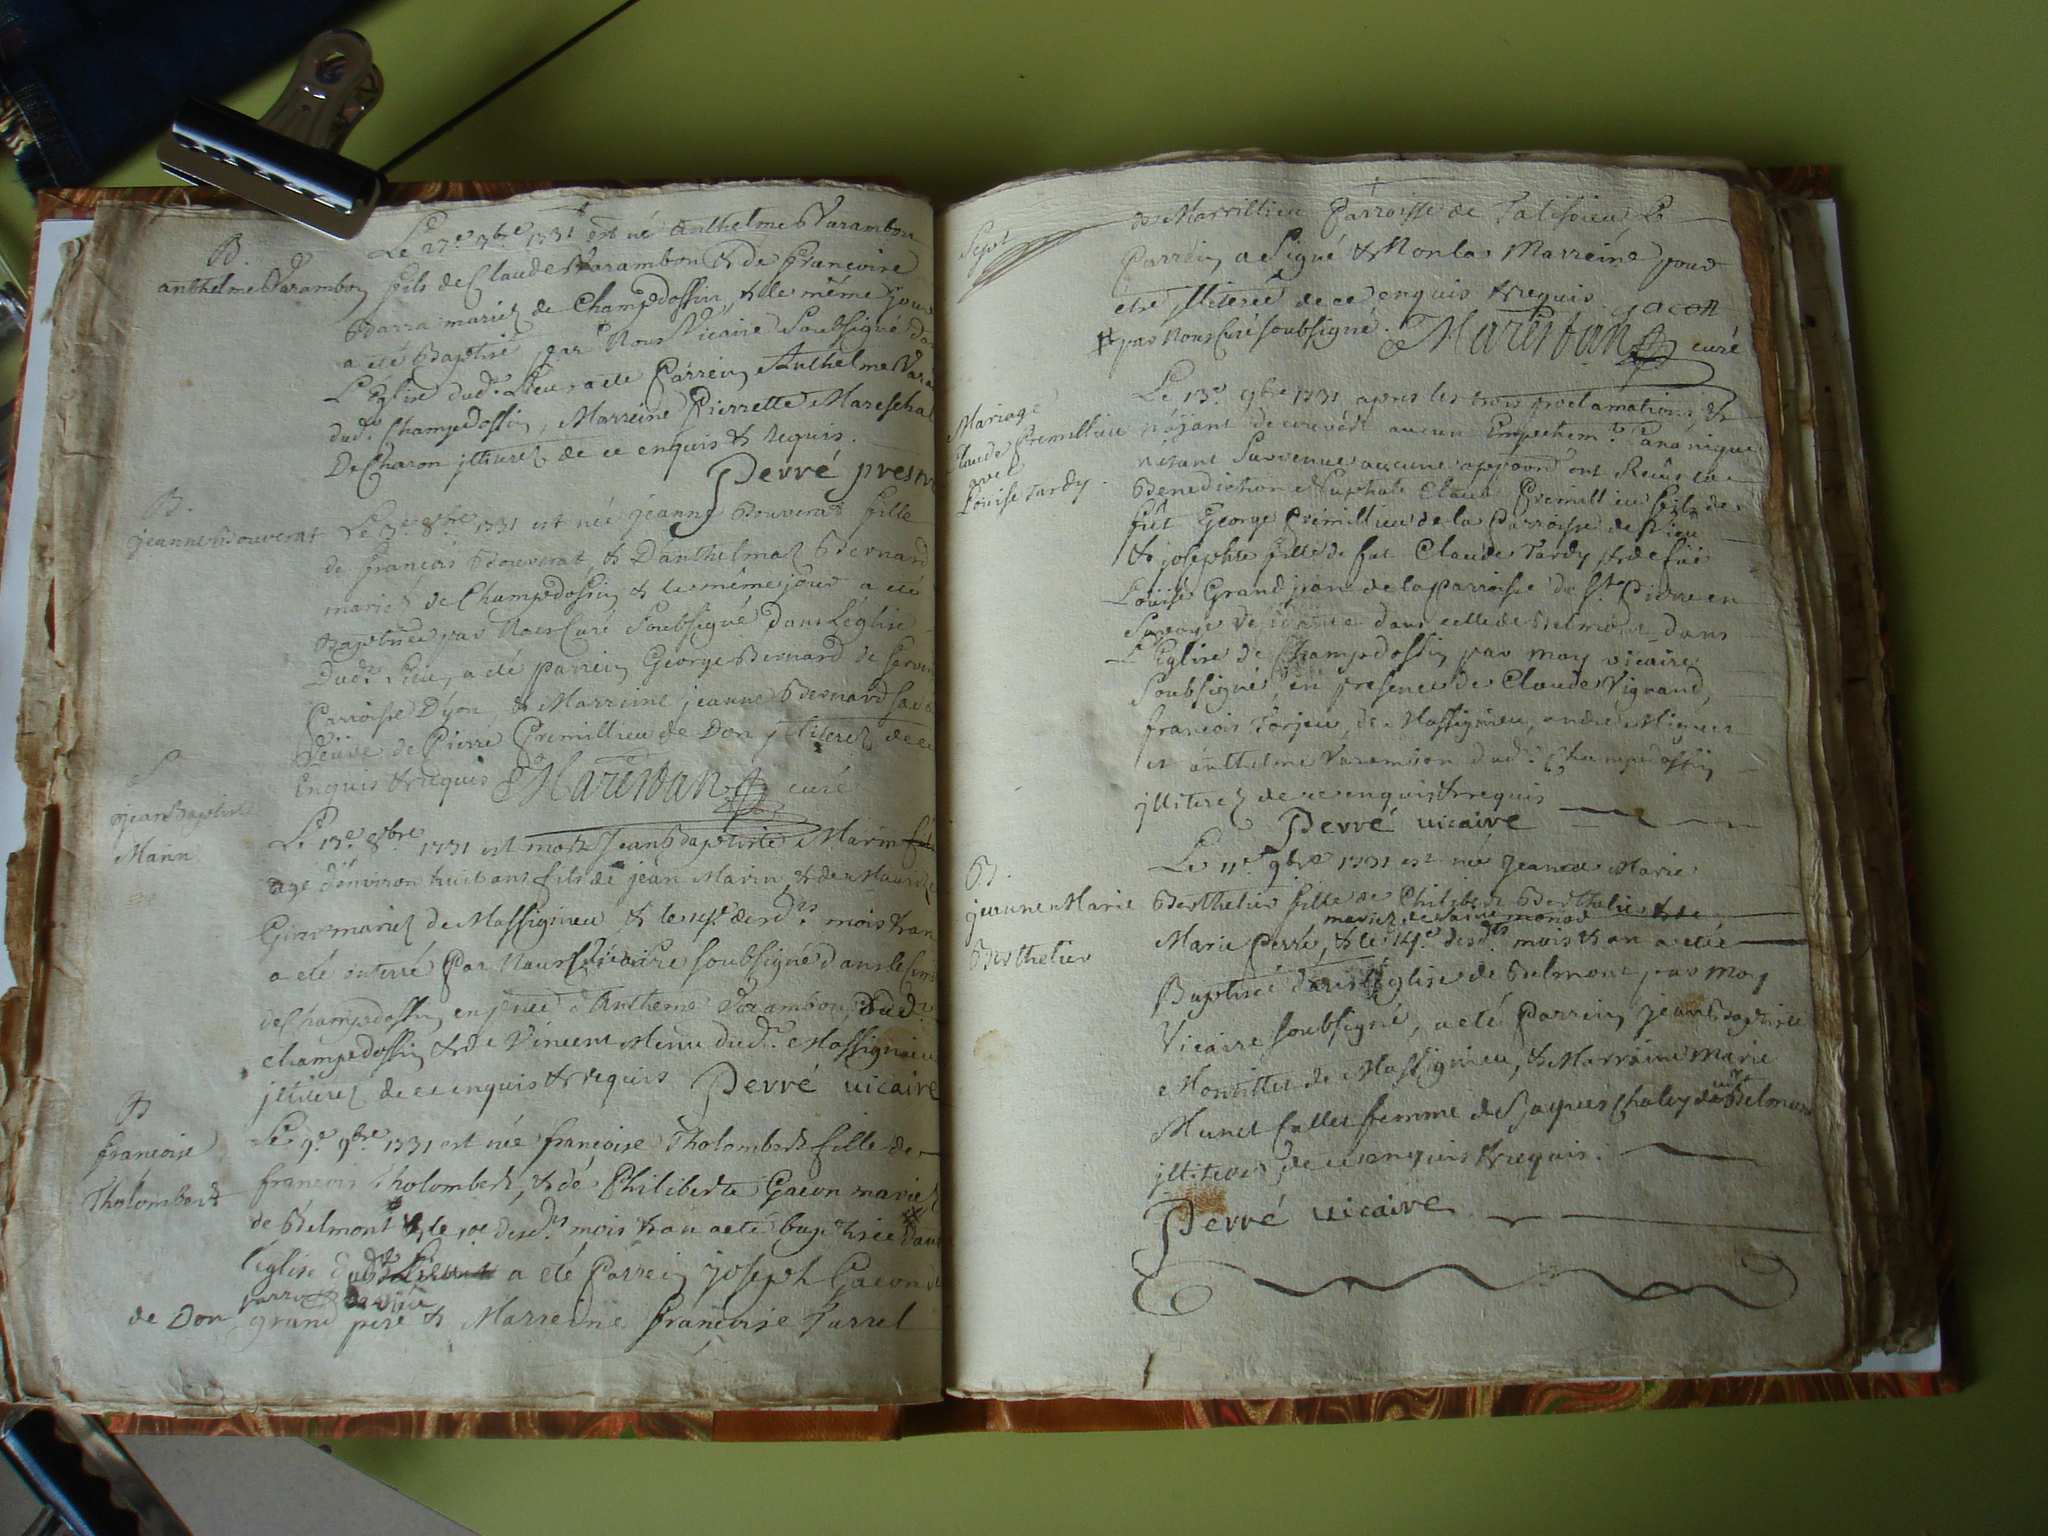 B.
anthelme Varambon
Le 27e 7bre 1731 est né Anthelme Varambon
fils de Claude Varambon & de Françoise
Barra mariez de Champdossin, & le même jour
a eté Baptisé par Nous Vicaire Soubsigné
L'Eglise dud. Lieu, a eté Parrein Anthelme
dud. Champdossin, Marreine Pierrette Mareschal
De Charon jlliterez de ce enquis & Requis.
Perré prestre
B.
jeanne Bouverat
Le 3e 8bre 1731 est née jeanne Bouverat fille
de françois Bouverat, & D'anthelmaz Bernard
mariez de Champdossin & le même jour a eté
Baptisée par Nous Curé Soubsigné dans L'église
Dud. Lieu, a eté parrein George Bernard de
Parroisse D'yon, & Marreine jeanne Bernard
Veuve de Pierre Premillieu de Don jlliterez de ce
Enquis & requis Marestan curé
S
jean Baptiste
Marin
Le 13e 8bre 1731 est mort Jean Baptiste Marin
agé d'environ huit ans fils de jean Marin, & de
mariez de Massignieu & le desds. mois & an
a eté enterré Par Nous Vicaire soubsigné dans le
de Champdossin en d'Antheme Varambon, Dud.
Champdossin & de Vincent Menu dud. Massignieu
jlliterez de ce enquis & requis Perré vicaire
B
françoise
Tholombert
Le 9e 9bre 1731 est née françoise Tholombert fille de
françois Tholombert, & de Philiberte Gacon mariez
de Belmont & le 10e desds. mois & an a eté baptisée dans
l'église dud. a eté Parrein joseph Gacon
de Don grand pere & Marreine françoise Jurrel
Sept
de Marrillieu Parroisse de Talissieu, Le
Parrein a Signé & Non la Marreine pour
étre jlliterée de ce enquis & requis gacon
# par Nous Curé soubsigné. Marestan curé
Mariage
Claude Premillieu
avec
Louise Tardy.
Le 13e 9bre 1731 apres les trois proclamations, &
n'ayant decouvert aucun Empechemt. Cananique
n'etant Survenue aucune ont Reçus la
Benediction Nuptiale Claude Premillieu fils de
fut George Premillieu de la Parroisse de
& josephte fille de fut Claude Tardy & de fut
Louise Grandjean de la Parroisse de St. Pierre en
Savoye dans celle de Belmont dans
L'Eglise de Champdossin par moy vicaire
Soubsigné, en presence de Claude Vignand,
françois de Massignieu, andré Miguet
et anthelme Varambon dud. Champdossin
jlliterez de ce enquis & requis
Perré vicaire
B.
jeanne Marie
Berthelier
Le 11e 9bre 1731 est née Jeanne Marie
Berthelier fille de Philibert Berthelier & de
mariez de
Marie Perré, & le 14e desds. mois & an a eté
Baptisée dans l'Eglise de Belmont par moy
Vicaire soubsigné, a eté Parrein jean Baptiste
de Massignieu, & Marraine marie
Munet femme de Jaques Chaley de Belmont
jlliterez de ce enquis & requis.
Perré vicaire